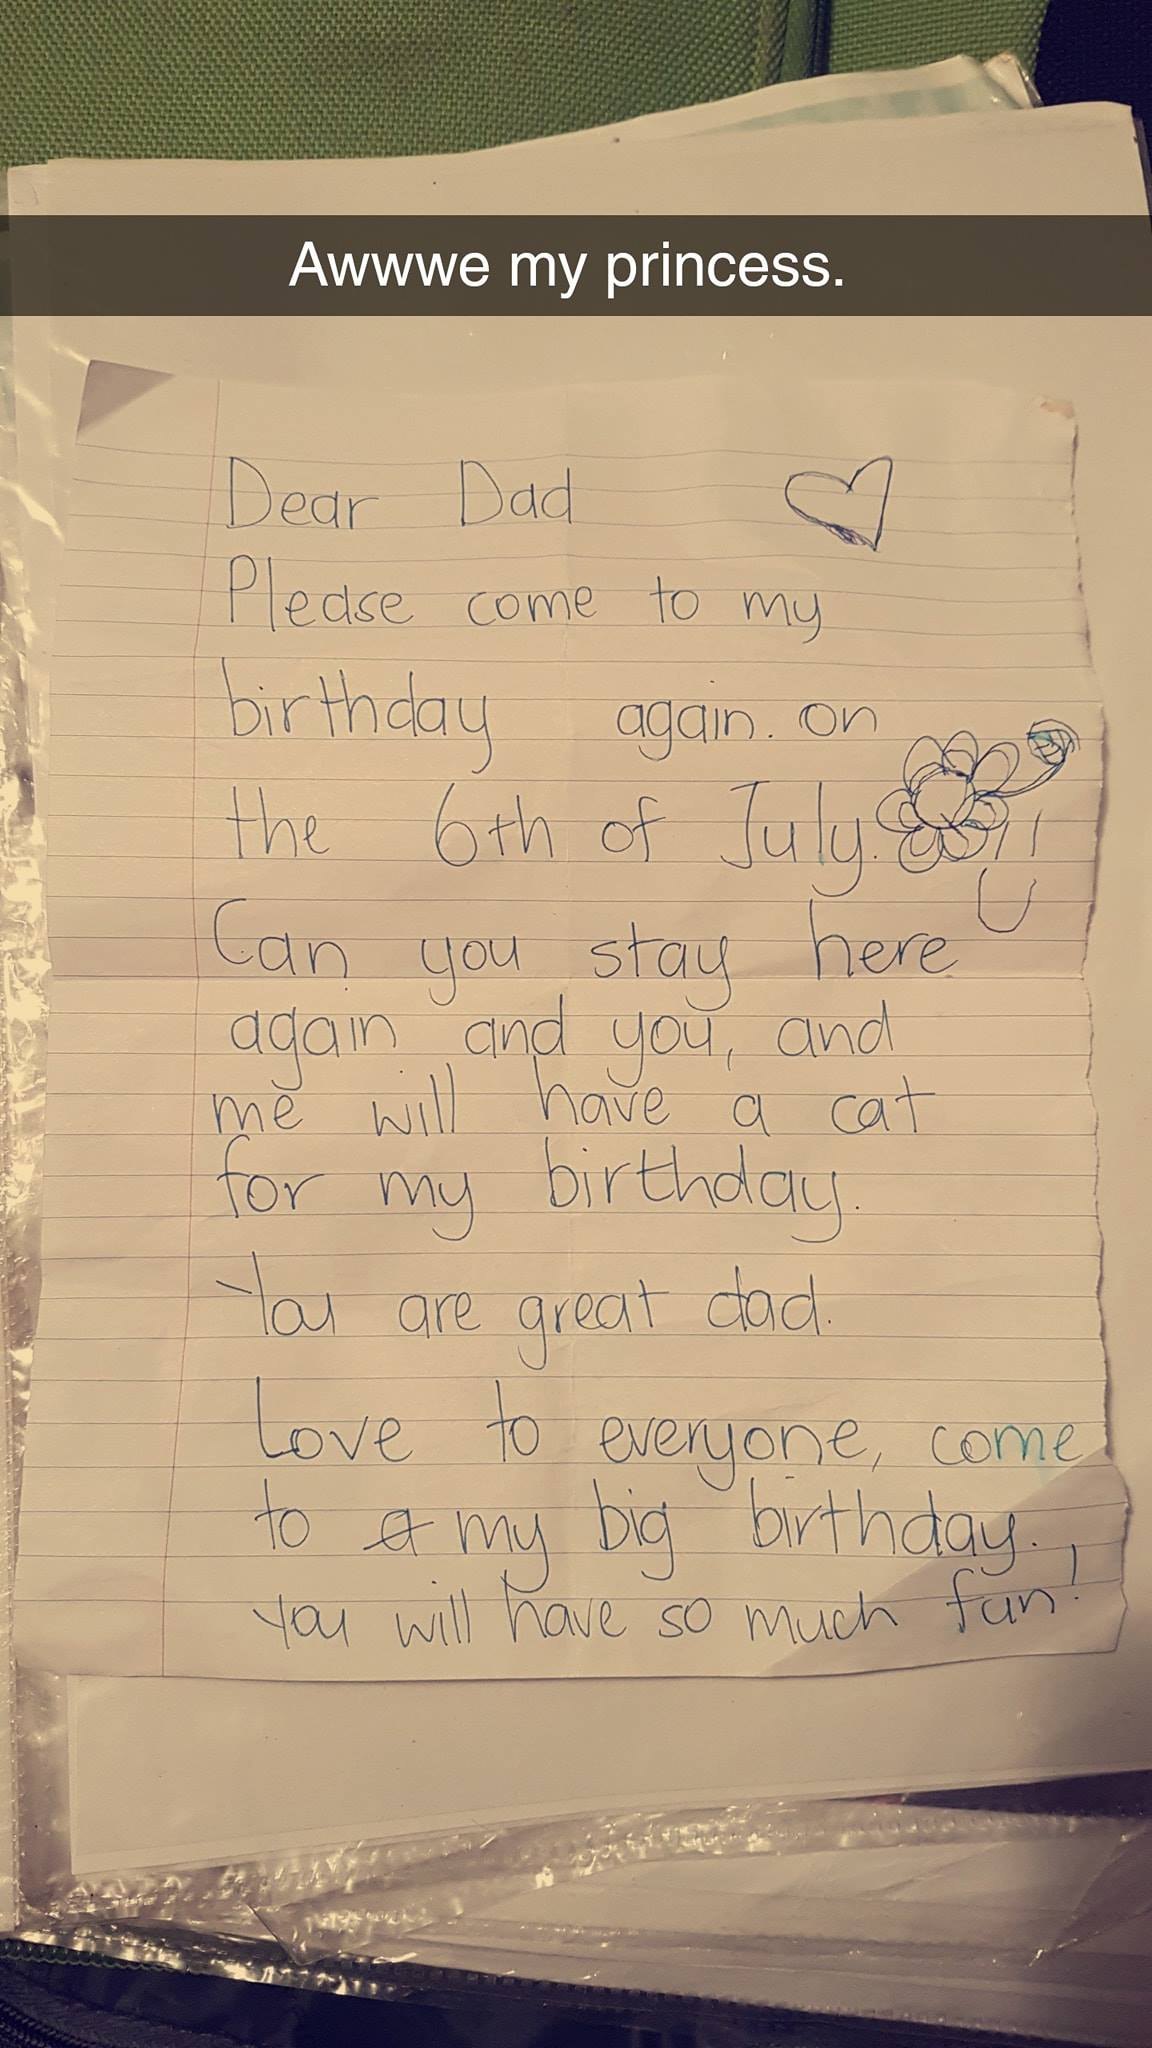 Awwwe my princess.
Dear Dad
Please come to my
birthday again. on
the 6th of July.
Can you stay here
again and you, and
me will have a cat
for my birthday.
You are great dad.
Love to everyone, come
to a my big birthday.
you will have so much fun!